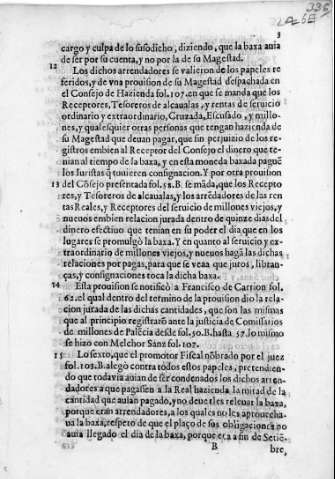 3
cargo y culpa de lo susodicho, diziendo, que la baxa auia
de ser por su cuenta, y no por la de su Magestad.
12 Los dichos arrendadores se valieron de los papeles re
feridos, y de vna prouision de su Magestad despachada en
el Consejo de Hazienda fol. 107. en que se manda que los
Receptores, Tesoreros de alcaualas, y rentas de seruicio
ordinario y extraordinario, Cruzada, Escusado, y millo-
nes, y qualesquier otras personas que tengan hazienda de
su Magestad que deuan pagar, que sin perjuizio de los re-
gistros embien al Receptor del Consejo el dinero que te-
nian al tiempo de la baxa, y en esta moneda baxada paguē
los Iuristas q̄ tuuieren consignacion. Y por otra prouision
13 del Cōsejo presentada fol. 58. B. se māda, que los Recepto
res, y Tesoreros de alcaualas, y los arrēdadores de las ren
tas Reales, y Receptores del seruicio de millones viejos, y
nueuos embien relacion jurada dentro de quinze dias del
dinero efectiuo que tenian en su poder el dia que en los
lugares se promulgò la baxa. Y en quanto al seruicio y ex-
traordinario de millones viejos, y nueuos hagā las dichas
relaciones por pagas, para que se vea que juros, libran-
ças, y consignaciones toca la dicha baxa.
14 Esta prouision se notificò a Francisco de Carrion fol.
62. el qual dentro del termino de la prouision dio la rela-
cion jurada de las dichas cantidades, que son las mismas
que al principio registrarō ante la justicia de Comissarios
de millones de Palēcia desde fol. 50. B. hasta 57. lo mismo
se hizo con Melchor Sanz fol. 102.
15 Lo sexto, que el promotor Fiscal nōbrado por el juez
fol. 103. B. alegò contra todos estos papeles, pretendien-
do que todauia auian de ser condenados los dichos arren-
dadores a que pagassen a la Real hazienda la mitad de la
cantidad que auian pagado, y no deuerles releuar la baxa,
porque eran arrendadores, a los quales no les aprouecha-
ua la baxa, respeto de que el plaço de sus obligaciones no
auia llegado el dia de la baxa, porque era a fin de Setiē-
B
bre,